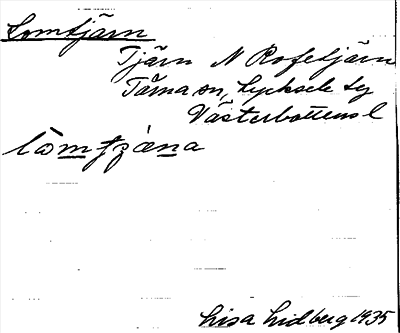 Lomtjärn
Tjärn N Rofetjärn
Tärna sn, Lycksele lg
Västerbottens l
Lisa Lidberg 1935